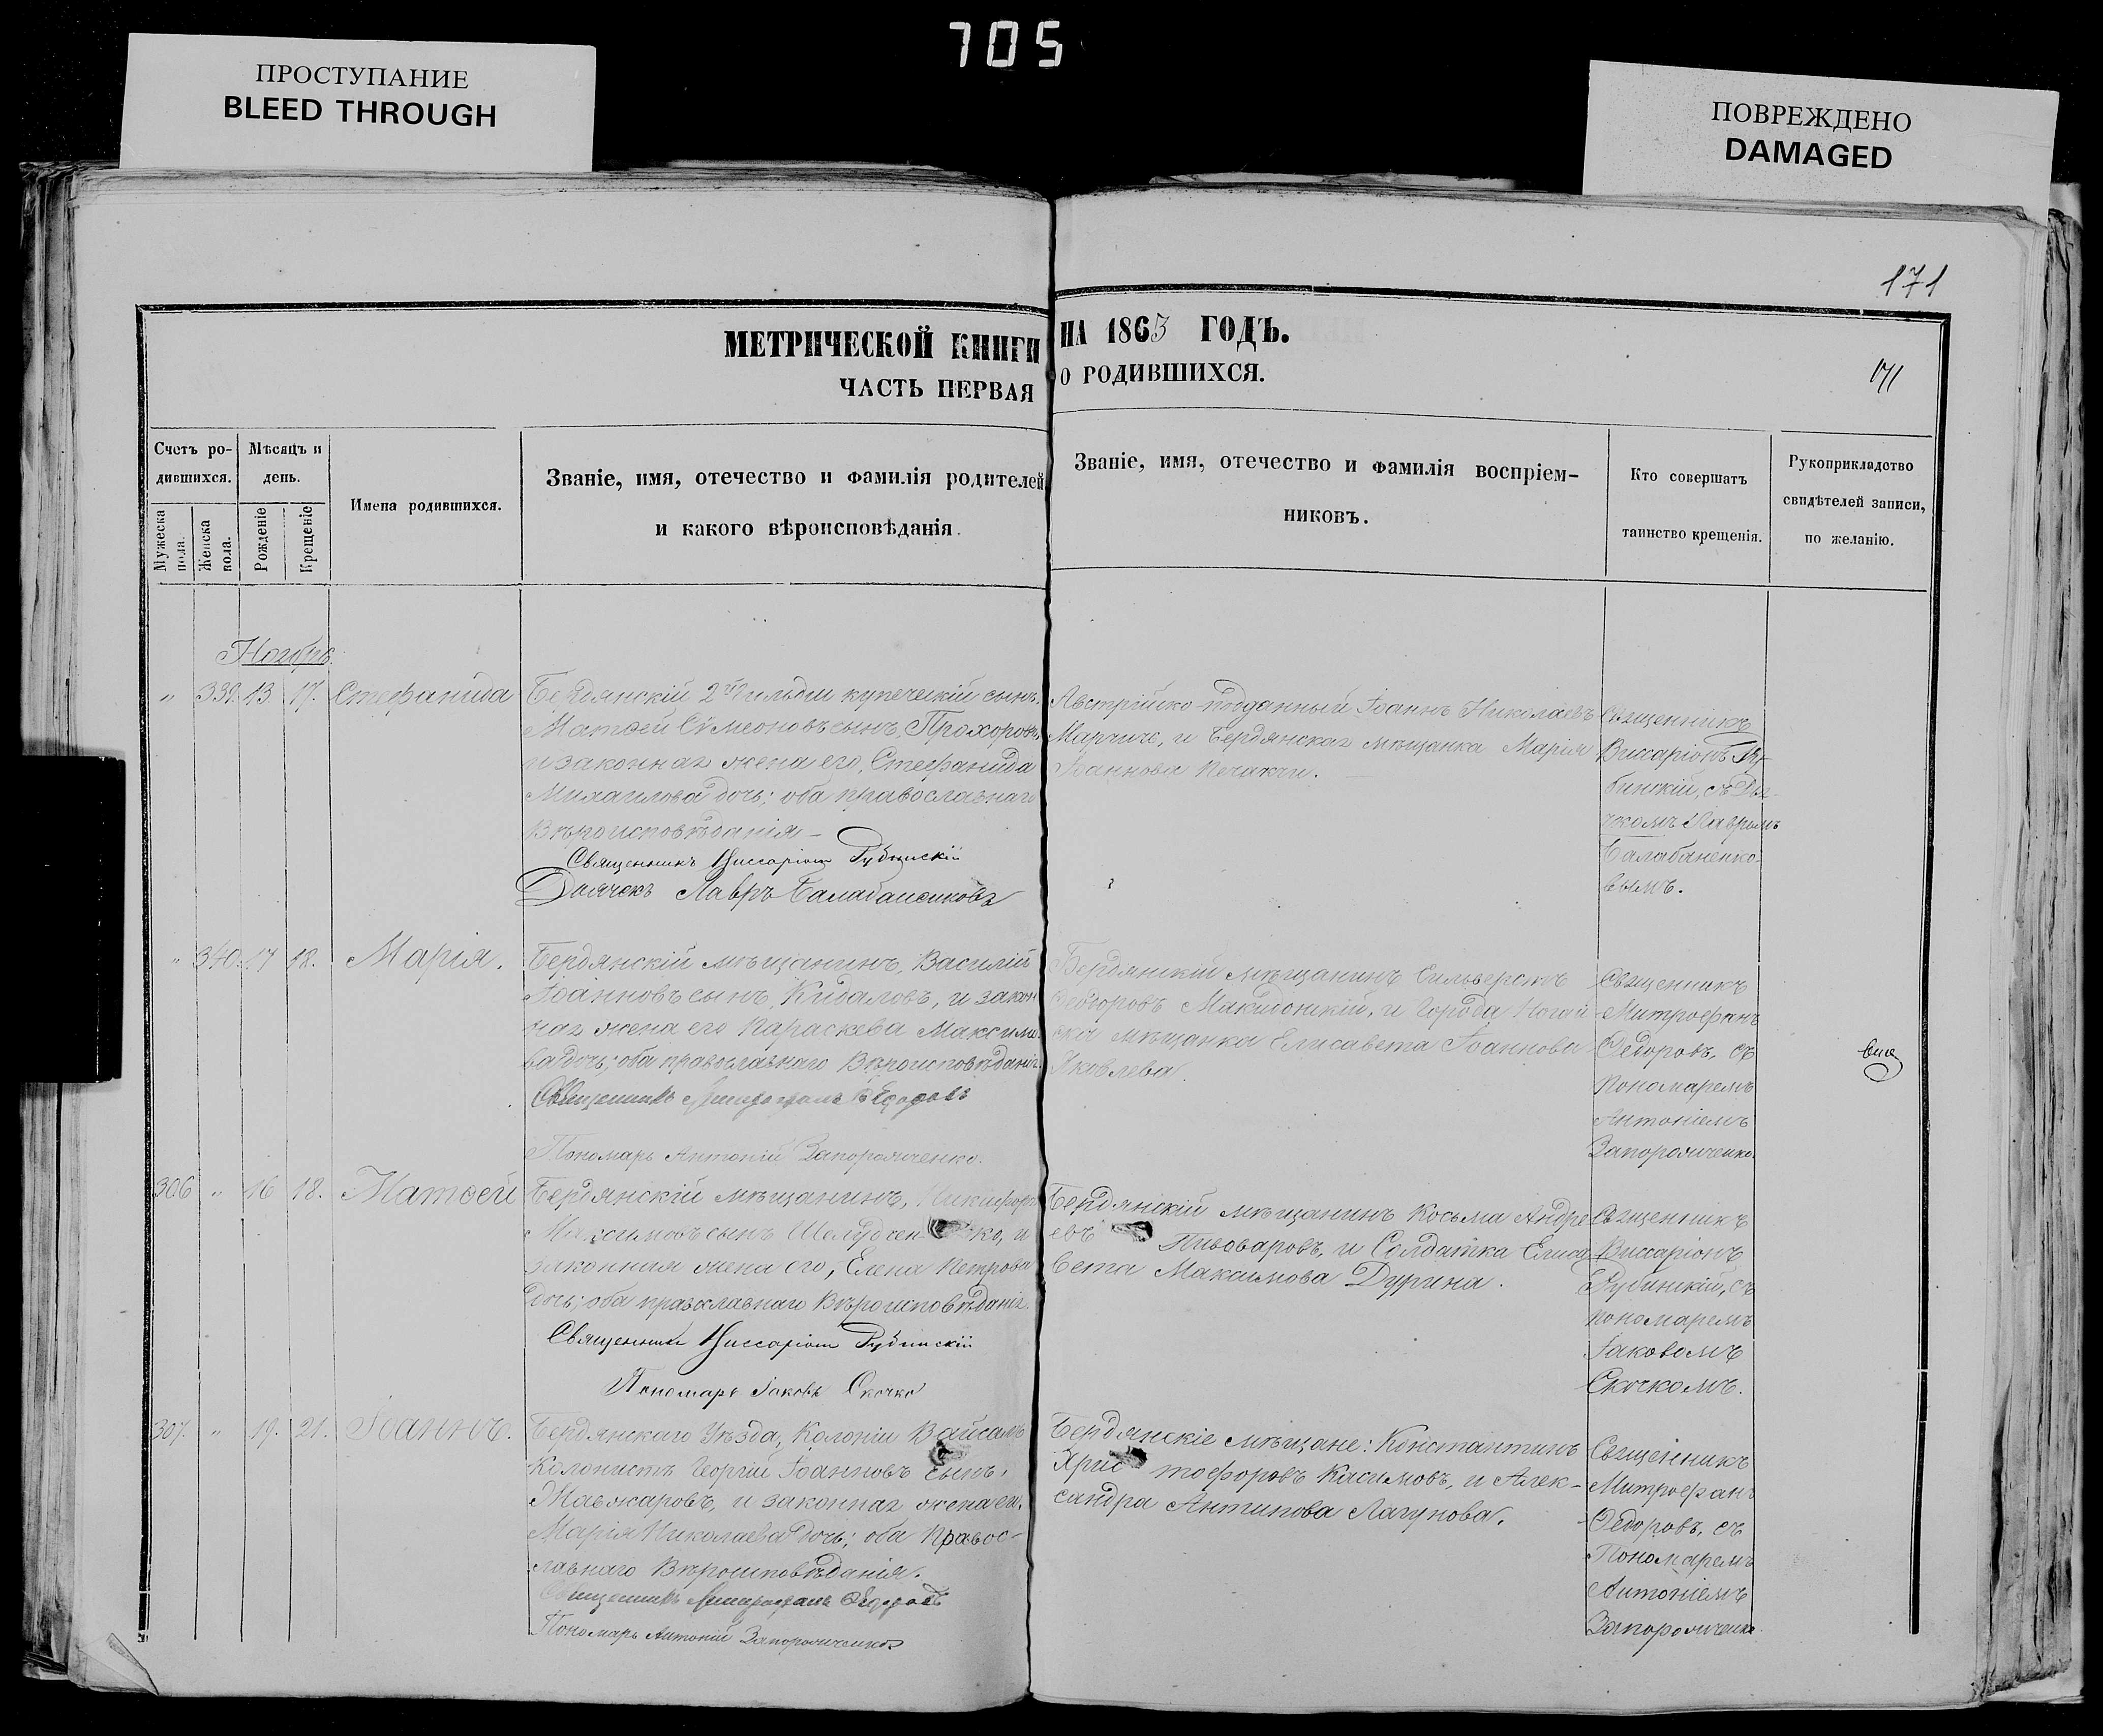 705
ПРОСТУПАНИЕ
BLEED THROUGH
ПОВРЕЖДЕНО
DAMAGED
171
МЕТРИЧЕСКОЙ КНИГИ НА 1863 ГОДЪ.
ЧАСТЬ ПЕРВАЯ О РОДИВШИХСЯ.
171
Счетъ ро-
дившихся.
Мужеска пола.
Женска пола.
Мѣсяцъ и
день.
Рожденіе
Крещеніе
Имена родившихся.
Званіе, имя, отечество и фамилія родителей
и какого вѣроисповѣданія.
Званіе, имя, отечество и фамилія воспріем-
никовъ.
Кто совершатъ
таинство крещенія.
Рукоприкладство
свидѣтелей записи,
по желанію.
Ноябрь
" 339. 13 17. Стефанида
Бердянскій 2й гильдіи купеческій сынъ,
Матѳей Сѵмеоновъ сынъ, Прохоровъ,
и законная жена его, Стефанида
Михаилова дочь; оба православнаго
Вѣроисповѣданія –
Священникъ Виссаріонъ Рубинскій
Дьячокъ Лавръ Балабаненковъ
Австрійско-подданный Іоаннъ Николаевъ
Марчичъ, и Бердянская мѣщанка Марія
Іоаннова
Священникъ
Виссаріонъ Ру-
бинскій, съ Дья-
чкомъ Лавромъ
Балабаненко-
вымъ.
" 340. 17 18. Марія.
Бердянскій мѣщанинъ, Василій
Іоанновъ сынъ, Кидаловъ, и закон
ная жена его Параскева Максимо
ва дочь; оба православнаго Вѣроисповѣданія.
Священникъ Митрофанъ Ѳедоровъ
Пономарь Антоній Запорожченко.
Бердянскій мѣщанинъ Сильверстъ
Ѳедоровъ Македонскій, и Города Ногай
ска мѣщанка Елисавета Іоаннова
Яковлева.
Священникъ
Митрофанъ
Ѳедоровъ, съ
Пономаремъ
Антоніемъ
Запорожченко.
306 " 16 18. Матѳей
Бердянскій мѣщанинъ, Никифоръ
Максимовъ сынъ Шелудченко, и
законная жена его, Елена Петрова
дочь; оба православнаго Вѣроисповѣданія.
Священникъ Виссаріонъ Рубинскій
Пономарь Іаковъ Скочко
Бердянскій мѣщанинъ Косьма Андре
евъ Пивоваровъ, и Солдатка Елиса
вета Максимова Дурина.
Священникъ
Виссаріонъ
Рубинскій, съ
пономаремъ
Іаковомъ
Скочкомъ.
307. " 19. 21. Іоаннъ.
Бердянскаго Уѣзда, Колоніи
Колонистъ Георгій Іоанновъ сынъ,
Мавжаровъ, и законная жена его,
Марія Николаева дочь; оба Правос-
лавнаго Вѣроисповѣданія.
Священникъ Митрофанъ Ѳедоровъ
Пономарь Антоній Запорожченко
Бердянскіе мѣщане: Константинъ
Христофоровъ Касимовъ, и Алек-
сандра Антипова Лагунова.
Священникъ
Митрофанъ
Ѳедоровъ, съ
Пономаремъ
Антоніемъ
Запорожченко.